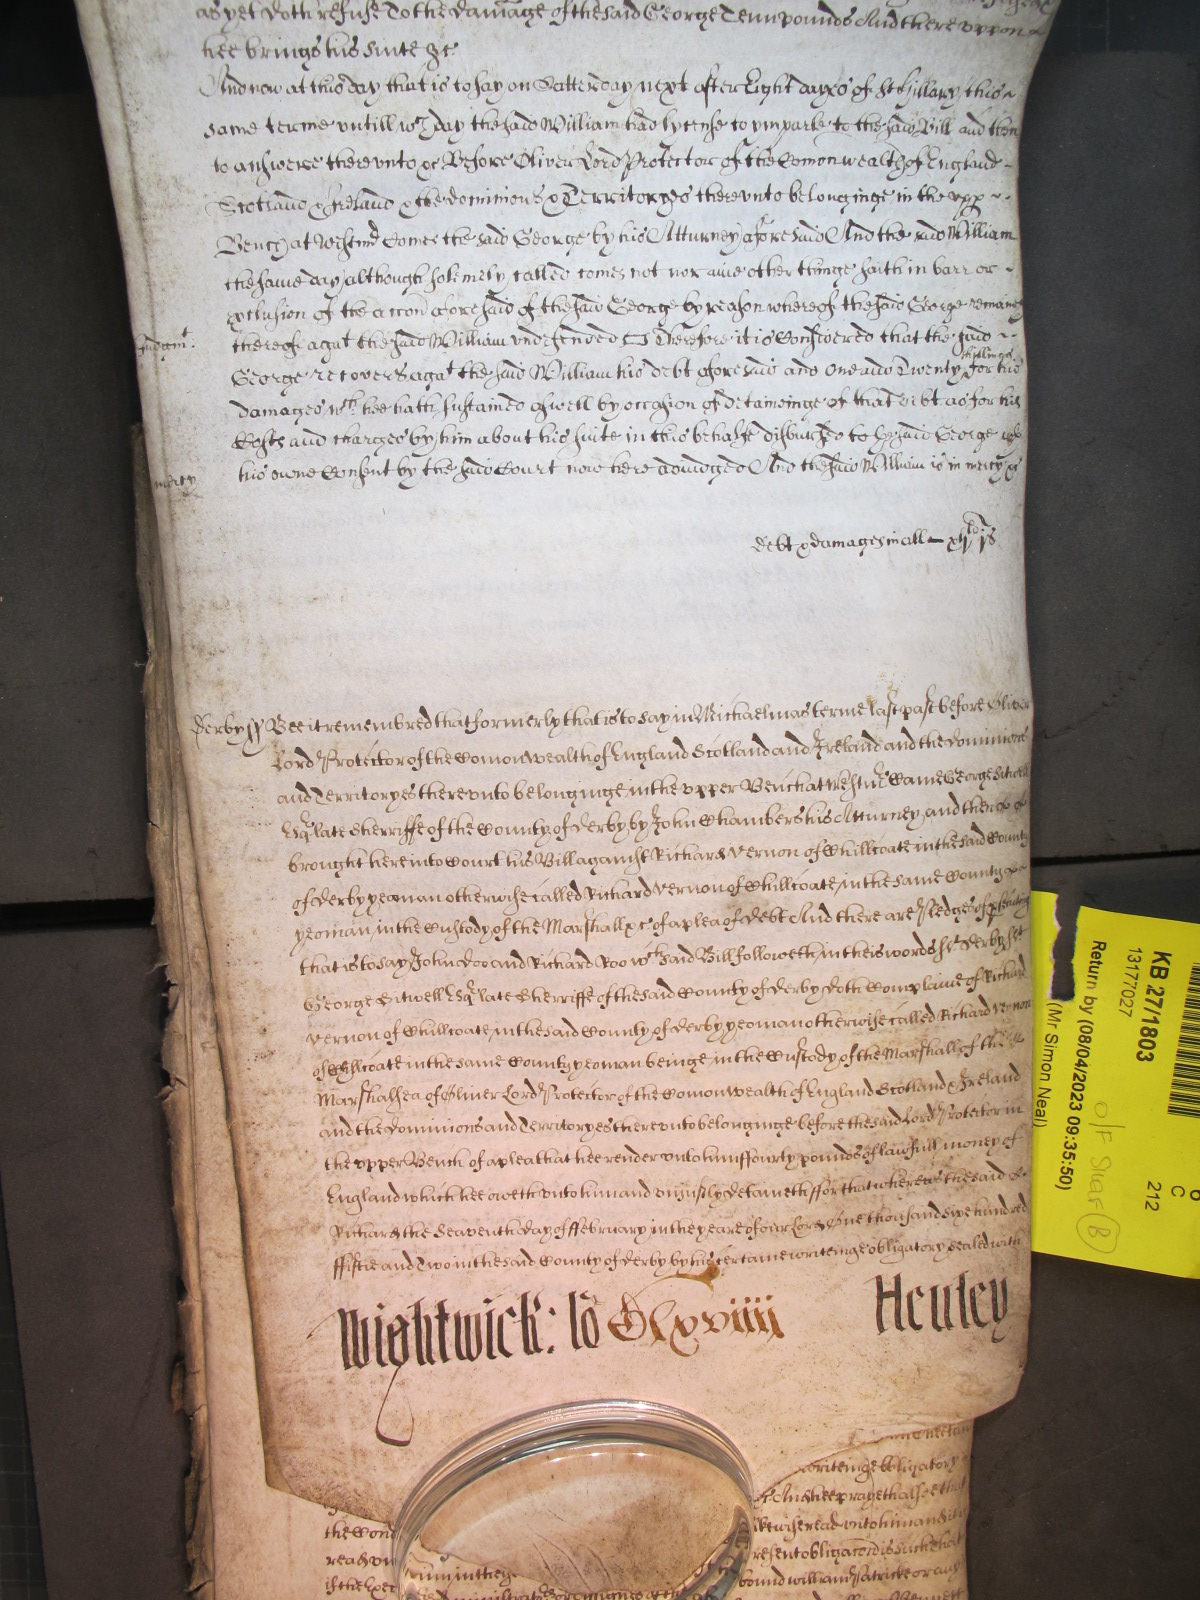 as yet doth refuse To the damage of the said George Tenn pounds And there uppon
hee brings his suite &c
And now at this day that is to say on Satterday next after Eight dayes of St Hillary this
same terme untill wch day the said William had lycense to imparle to the said Bill and then
to answere thereunto &c Before Oliver Lord Protector of the Comonwealth of England
Scotland & Ireland & the dominions & Territoryes thereunto belonginge in the upp
Bench at Westmr Comes the said George by his Atturney aforesaid And the said William
the same day although solemnly called comes not nor anie other thinge saith in barr or
p'clusion of the accon aforesaid of the said George by reason whereof the said George remanes
Judgmt.
thereof agat the said William undefended Therefore it is Considered that the said
shillings
George recover agat the said William his debt aforesaid and one and Twenty for his
damages wch hee hath sustained aswell by occasion of detaineinge of that debt as for his
Costs and charges by him about his suite in this behalfe disbursed to the said George with
mercy
his owne Consent by the said Court now here adiudged And the said William is in mercy &c
debt & damages in all xlj li js
Derby ss Bee it remembred that formerly that is to say in Michaelmas terme last past before Oliver
Lord Protector of the Comonwealth of England Scotland and Ireland and the dominions
and Territoryes thereunto belonginge in the upper Bench at Westmr Came George Sitwell
Esqr late Sherriffe of the County of Derby by John Chambers his Atturney and then
brought here into Court his Bill against Richard Vernon of Chillcoate in the said County
of Derby yeoman otherwise called Richard Vernon of Chillcoate in the same County
yeoman in the Custody of the Marshall &c of a plea of debt And there are Pledges of p'secuting
that is to say John Doo and Richard Roo wch said Bill followeth in theis words ss Derby ss
George Sitwell Esqr late Sherriffe of the said County of Derby doth Complaine of Richard
Vernon of Chillcoate in the said County of Derby yeoman otherwise called Richard Vernon
of Chillcoate in the same County yeoman beinge in the Custody of the Marshall of the
Marshalsea of Oliver Lord Protector of the Comonwealth of England Scotland & Ireland
and the dominions and Territoryes thereunto belonginge before the said Lord Protector in
the upper Bench of a plea that hee render unto him ffourty pounds of lawfull money of
England which hee oweth unto him and uniustly detaineth ffor that whereas the said
Richard the Seaventh day of ffebruary in the yeare of our Lord One thousand sixe hundred
ffiftie and Two in the said County of Derby by his certaine writeinge obligatory sealed with
Wightwick: Ro Clxviiij Henley
writeinge obligatory
And hee prayeth alsoe that
likewise read unto him
the Cond
KB 27/1803
13177027
Return by (08/04/2023 09:35:50)
(Mr Simon Neal)
C
212
B